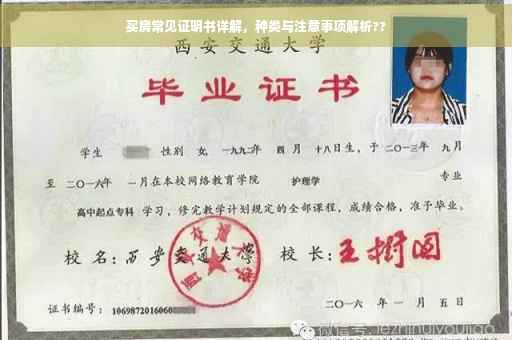 买房常见证明书详解，种类与注意事项解析??
西安交通大学
毕业证书
学生 性别 女，一九九二年 四月 十八日生，于 二〇一三年 九月
至 二〇一六年 一月在本校网络教育学院 护理学 专业
高中起点专科 学习，修完教学计划规定的全部课程，成绩合格，准予毕业。
校名：西安交通大学 校长：王树国
西安交通大学
证书编号：1069872016060
二〇一六年 一月 五日
微信号: jiezhihuiyoujiao